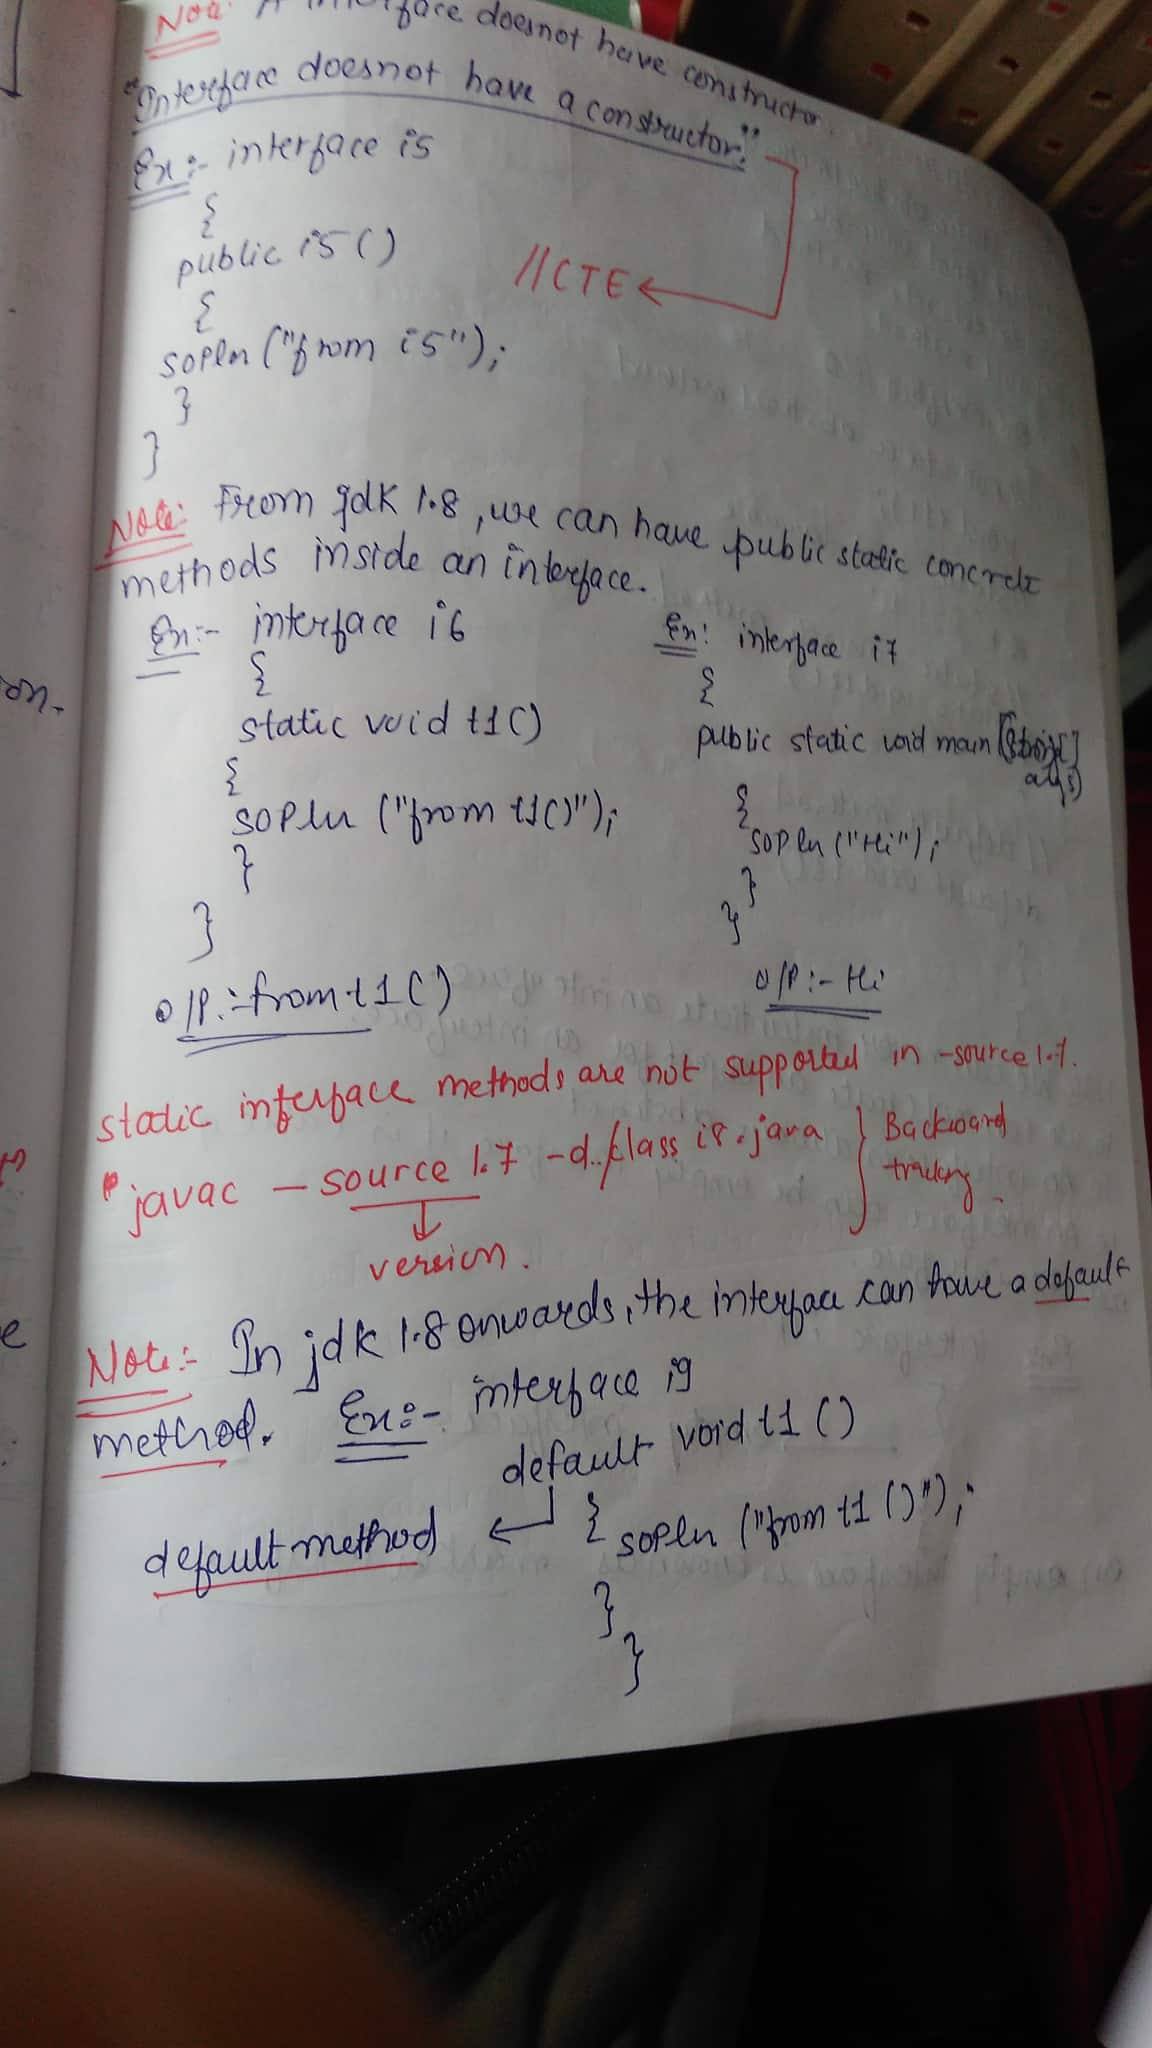 Note: A interface doesnot have constructor.
"Interface doesnot have a constructor."
Ex:- interface i5
{
public i5()
//CTE
{
sopln ("from i5");
}
}
Note: From jdk 1.8, we can have public static concrete
methods inside an interface.
Ex:- interface i6
{
static void t1()
{
sopln ("from t1()");
}
}
o/p:- from t1()
Ex: interface i7
{
public static void main (String[]
args)
{
sopln ("Hi");
}
}
o/p:- Hi
static interface methods are not supported in -source 1.7.
javac - source 1.7 -d../class i8.java } Backward
tracking.
version.
Note:- In jdk 1.8 onwards, the interface can have a default
method. Ex:- interface i9
default void t1 ()
default method ← { sopln ("from t1 ()");
}
}